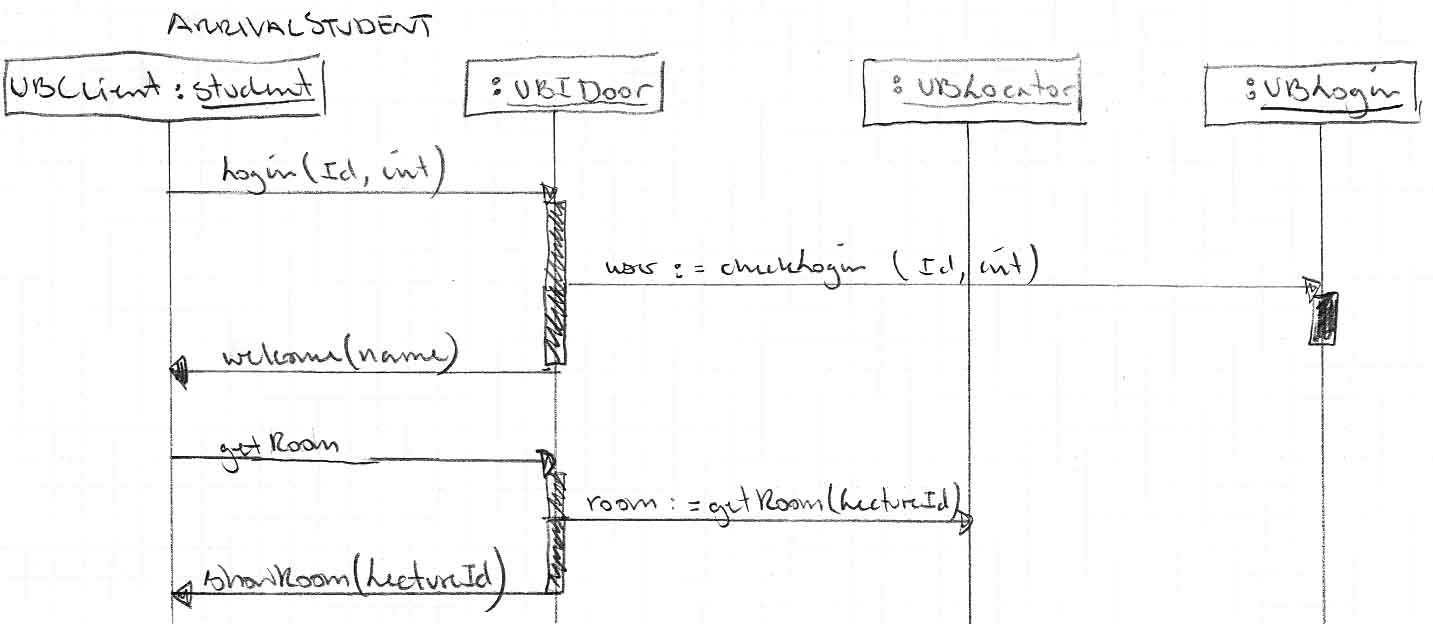 ARRIVALSTUDENT
UBClient : Student
: UBIDoor
: UBLocator
: UBLogin
Login(Id, int)
user := checkLogin (Id, int)
welcome(name)
getRoom
room := getRoom(LectureId)
showRoom(LectureId)